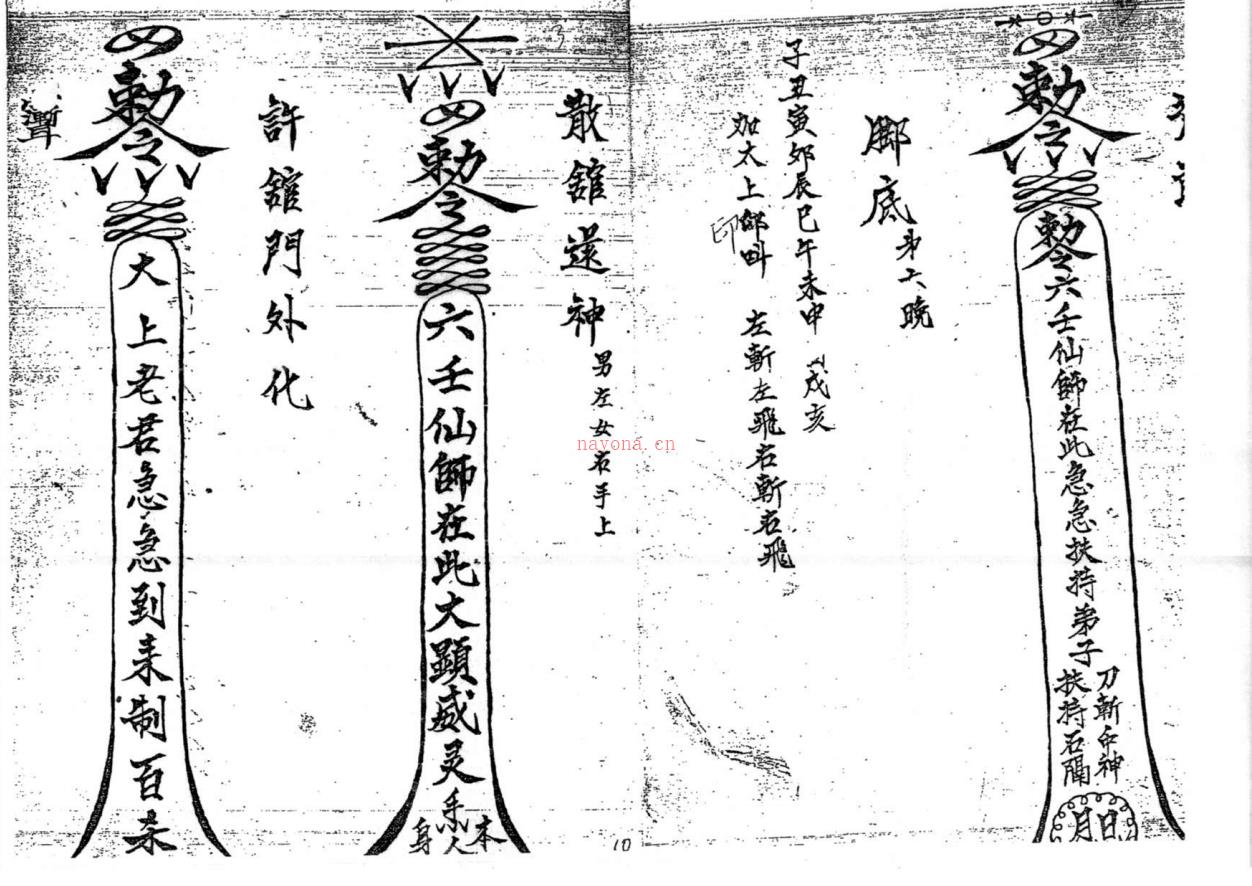 勅令
勅令六壬仙師在此急急扶持弟子
刀斬
神
扶持石
日月
脚底
第六晚
子丑寅卯辰巳午未申
戌亥
加太上
印
左斬左飛右斬右飛
散舘送神
男左女右手上
四勅令
六壬仙師在此大顯威灵
本人身
10
許舘門外化
勅令
大上老君急急到来制百杀
nayona.cn